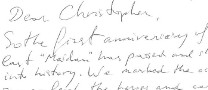 Dear Christopher,
So the first anniversary of
last "Maidan" has passed and
into history. We marked the
the heroes and